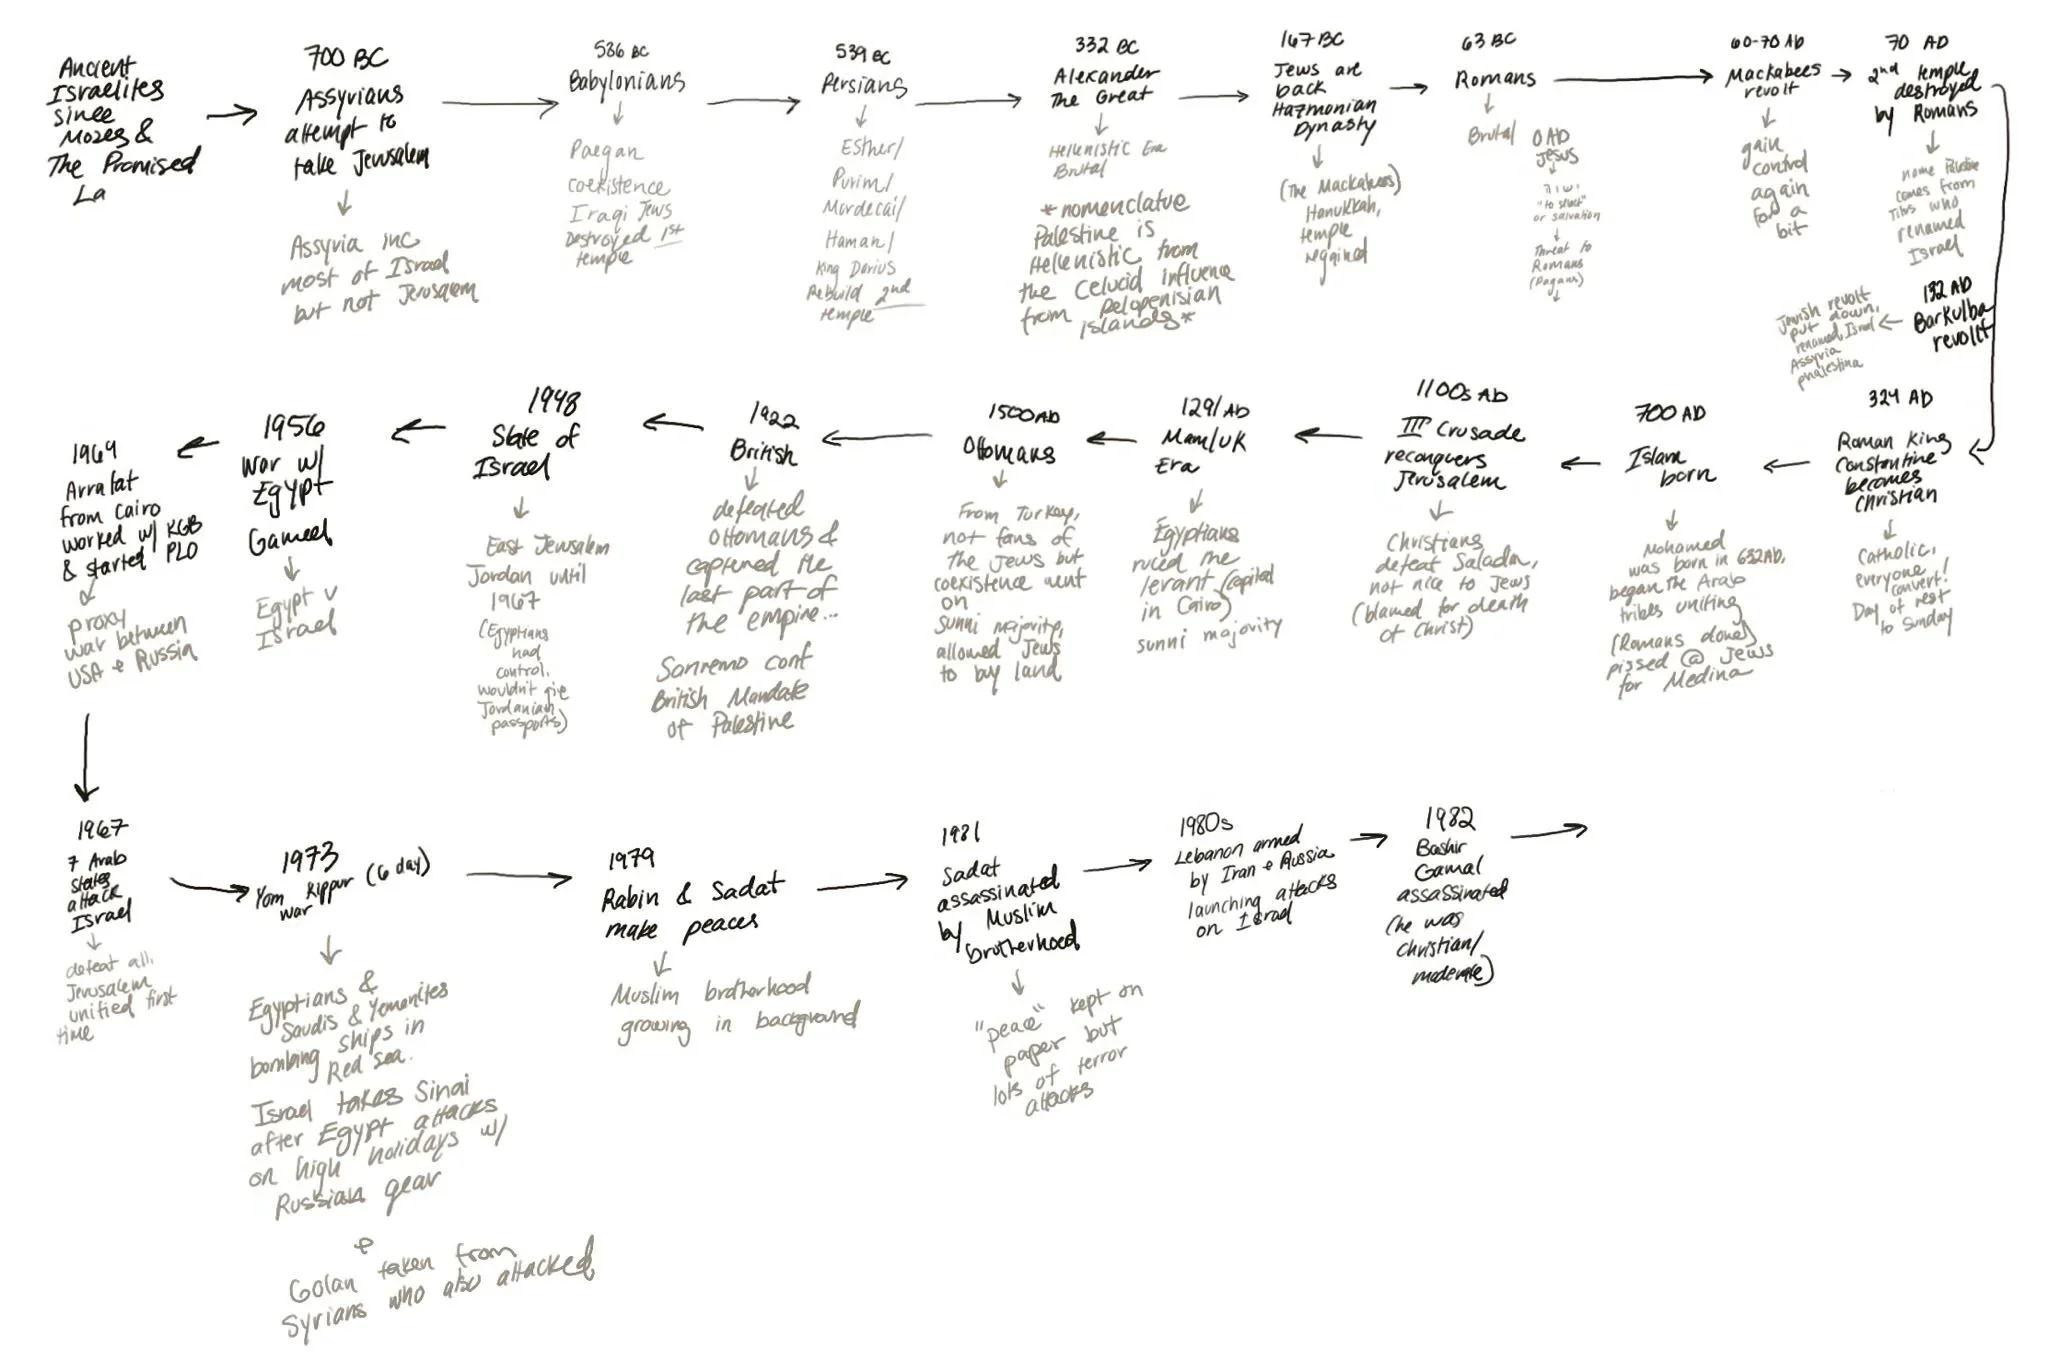 Ancient
Israelites
since
Mozes &
The Promised
La
700 BC
Assyrians
attempt to
take Jerusalem
Assyria inc
most of Israel
but not Jerusalem
536 BC
Babylonians
Paegan
coexistence
Iraqi Jews
Destroyed 1st
temple
539 BC
Persians
Esther/
Purim/
Mordecai/
Haman/
King Darius
Rebuild 2nd
temple
332 BC
Alexander
The Great
Hellenistic Era
Brutal
*nomenclatue
Palestine is
Hellenistic from
the Celucid influence
from Pelopenisian
islands*
167 BC
Jews are
back
Hazmonian
Dynasty
(The Mackabees)
Hanukkah,
temple
regained
63 BC
Romans
Brutal
0 AD
Jesus
or salvation
Threat to
Romans
(Pagans)
60-70 AD
Mackabees
revolt
gain
control
again
for a
bit
70 AD
2nd temple
destroyed
by Romans
name Palestine
comes from
Titus who
renamed
Israel
132 AD
Barkulba
revoltt
Jewish revolt
put down,
renamed Israel
Assyria
phalestina
324 AD
Roman King
Constantine
becomes
Christian
Catholic,
everyone
convert!
Day of rest
to Sunday
700 AD
Islam
born
Mohamed
was born in 632AD,
began the Arab
tribes uniting
(Romans done)
pissed @ Jews
for Medina
1100s AD
III Crusade
reconquers
Jerusalem
Christians
defeat Saladin,
not nice to Jews
(blamed for death
of Christ)
1291 AD
Mamluk
Era
Egyptians
ruled the
levant (capital
in Cairo)
sunni majority
1500 AD
Ottomans
From Turkey,
not fans of
the Jews but
coexistence went
on
sunni majority,
allowed Jews
to buy land
1922
British
defeated
Ottomans &
captured the
last part of
the empire...
Sanremo conf
British Mandate
of Palestine
1948
State of
Israel
East Jerusalem
Jordan until
1967
(Egyptians
had
control,
wouldn't give
Jordanian
passports)
1956
War w/
Egypt
Gameel
Egypt v
Israel
1964
Arrafat
from Cairo
worked w/ KGB
& started PLO
proxy
war between
USA & Russia
1967
7 Arab
states
attack
Israel
defeat all,
Jerusalem
unified first
time
1973
Yom Kippur (6 day)
war
Egyptians &
Saudis & Yemenites
bombing ships in
Red sea.
Israel takes Sinai
after Egypt attacks
on high holidays w/
Russian gear
&
Golan taken from
Syrians who also attacked
1979
Rabin & Sadat
make peaces
Muslim brotherhood
growing in background
1981
Sadat
assassinated
by Muslim
brotherhood
"peace" kept on
paper but
lots of terror
attacks
1980s
Lebanon armed
by Iran & Russia
launching attacks
on Israel
1982
Bashir
Gamal
assassinated
(he was
christian/
moderate)